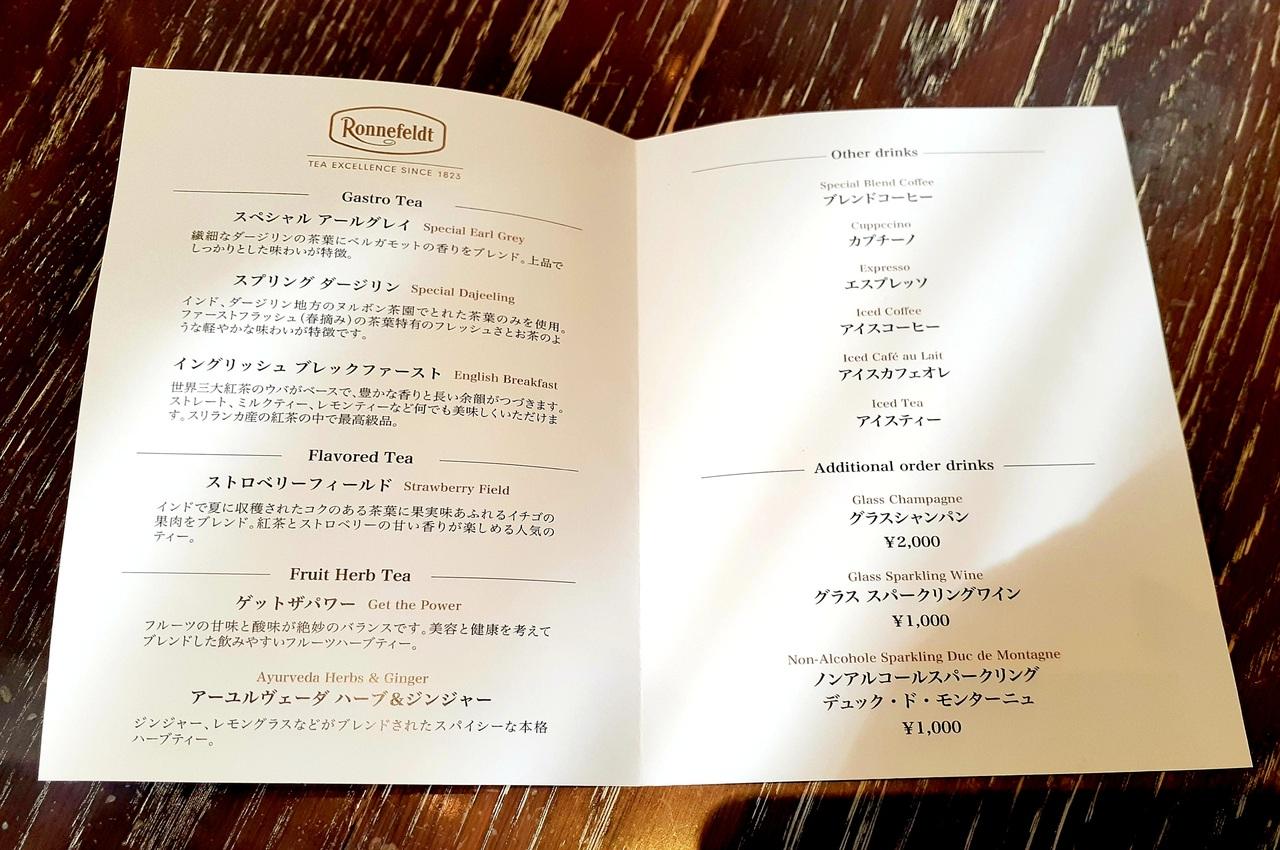 Ronnefeldt
TEA EXCELLENCE SINCE 1823
Gastro Tea
スペシャル アールグレイ Special Earl Grey
繊細なダージリンの茶葉にベルガモットの香りをブレンド。上品で
しっかりとした味わいが特徴。
スプリング ダージリン Special Dajeeling
インド、ダージリン地方のヌルボン茶園でとれた茶葉のみを使用。
ファーストフラッシュ(春摘み)の茶葉特有のフレッシュさとお茶のよ
うな軽やかな味わいが特徴です。
イングリッシュ ブレックファースト English Breakfast
世界三大紅茶のウバがベースで、豊かな香りと長い余韻がつづきます。
ストレート、ミルクティー、レモンティーなど何でも美味しくいただけま
す。スリランカ産の紅茶の中で最高級品。
Flavored Tea
ストロベリーフィールド Strawberry Field
インドで夏に収穫されたコクのある茶葉に果実味あふれるイチゴの
果肉をブレンド。紅茶とストロベリーの甘い香りが楽しめる人気の
ティー。
Fruit Herb Tea
ゲットザパワー Get the Power
フルーツの甘味と酸味が絶妙のバランスです。美容と健康を考えて
ブレンドした飲みやすいフルーツハーブティー。
Ayurveda Herbs & Ginger
アーユルヴェーダ ハーブ&ジンジャー
ジンジャー、レモングラスなどがブレンドされたスパイシーな本格
ハーブティー。
Other drinks
Special Blend Coffee
ブレンドコーヒー
Cuppecino
カプチーノ
Expresso
エスプレッソ
Iced Coffee
アイスコーヒー
Iced Café au Lait
アイスカフェオレ
Iced Tea
アイスティー
Additional order drinks
Glass Champagne
グラスシャンパン
¥2,000
Glass Sparkling Wine
グラス スパークリングワイン
¥1,000
Non-Alcohole Sparkling Duc de Montagne
ノンアルコールスパークリング
デュック・ド・モンターニュ
¥1,000